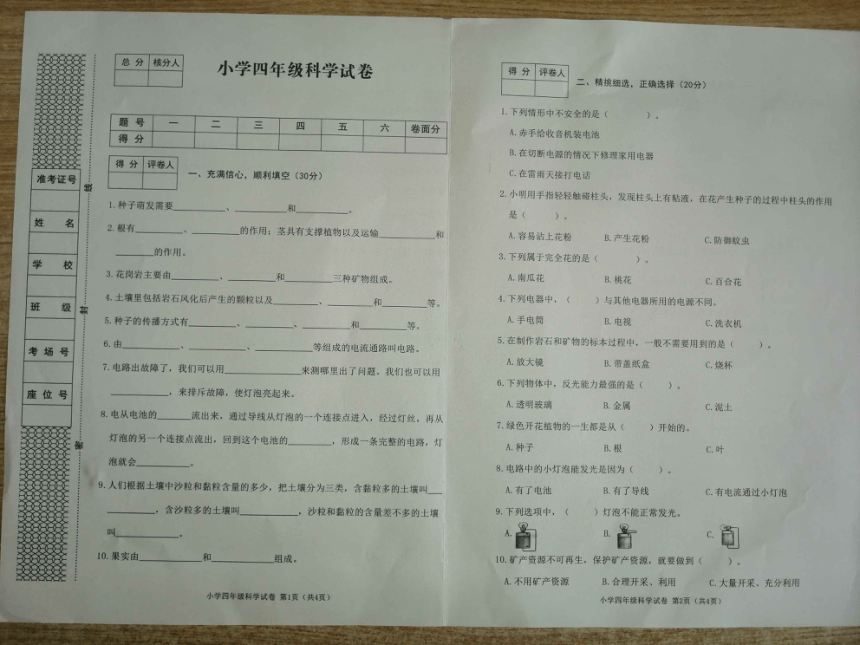 总 分 核分人
小学四年级科学试卷
题 号 一 二 三 四 五 六 卷面分
得 分
得 分 评卷人
一、充满信心，顺利填空（30分）
准考证号
姓 名
学 校
班 级
考 场 号
座 位 号
1.种子萌发需要________、________和________。
2.根有________、________的作用；茎具有支撑植物以及运输________和
________的作用。
3.花岗岩主要由________、________和________三种矿物组成。
4.土壤里包括岩石风化后产生的颗粒以及________、________和________等。
5.种子的传播方式有________、________、________和________等。
6.由________、________、________等组成的电流通路叫电路。
7.电路出故障了，我们可以用________来测哪里出了问题，我们也可以用
________，来排斥故障，使灯泡亮起来。
8.电从电池的________流出来，通过导线从灯泡的一个连接点进入，经过灯丝，再从
灯泡的另一个连接点流出，回到这个电池的________，形成一条完整的电路，灯
泡就会________。
9.人们根据土壤中沙粒和黏粒含量的多少，把土壤分为三类，含黏粒多的土壤叫__
________，含沙粒多的土壤叫________，沙粒和黏粒的含量差不多的土壤
叫________。
10.果实由________和________组成。
小学四年级科学试卷 第1页（共4页）
得 分 评卷人
二、精挑细选，正确选择（20分）
1.下列情形中不安全的是（ ）。
A.赤手给收音机装电池
B.在切断电源的情况下修理家用电器
C.在雷雨天接打电话
2.小明用手指轻轻触碰柱头，发现柱头上有粘液，在花产生种子的过程中柱头的作用
是（ ）。
A.容易沾上花粉 B.产生花粉 C.防御蚊虫
3.下列属于完全花的是（ ）。
A.南瓜花 B.桃花 C.百合花
4.下列电器中，（ ）与其他电器所用的电源不同。
A.手电筒 B.电视 C.洗衣机
5.在制作岩石和矿物的标本过程中，一般不需要用到的是（ ）。
A.放大镜 B.带盖纸盒 C.烧杯
6.下列物体中，反光能力最强的是（ ）。
A.透明玻璃 B.金属 C.泥土
7.绿色开花植物的一生都是从（ ）开始的。
A.种子 B.根 C.叶
8.电路中的小灯泡能发光是因为（ ）。
A.有了电池 B.有了导线 C.有电流通过小灯泡
9.下列选项中，（ ）灯泡不能正常发光。
A. B. C.
10.矿产资源不可再生，保护矿产资源，就要做到（ ）。
A.不用矿产资源 B.合理开采、利用 C.大量开采、充分利用
小学四年级科学试卷 第2页（共4页）